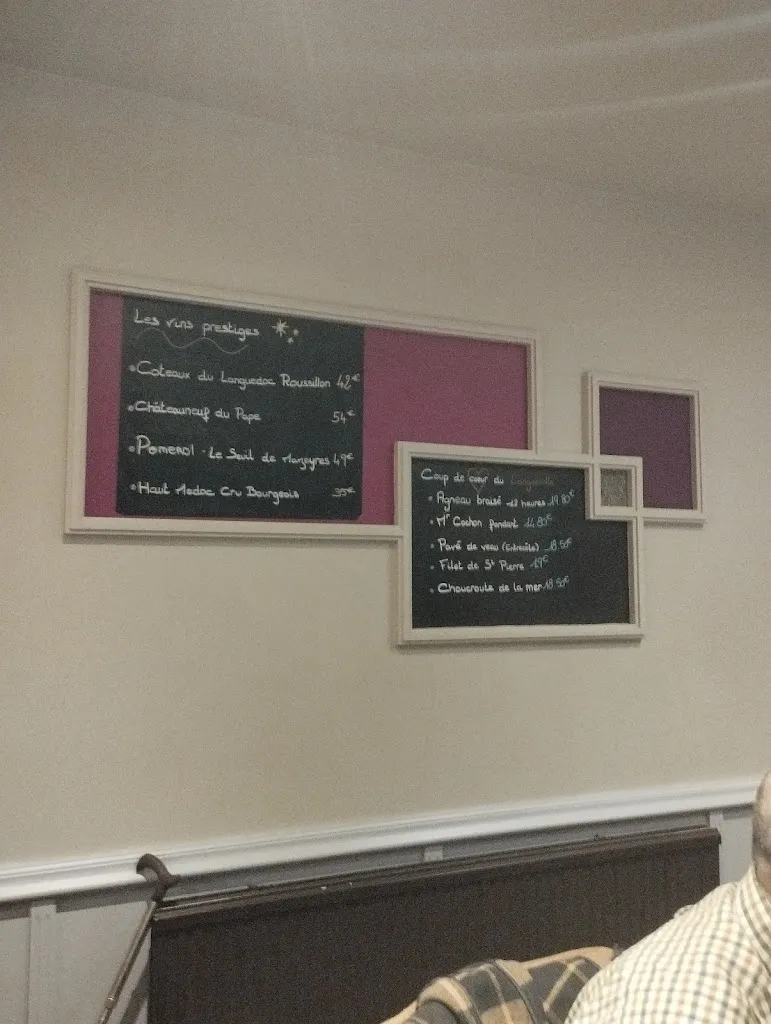 Les vins prestiges
• Coteaux du Languedoc Roussillon 42€
• Châteauneuf du Pape 54€
• Pomerol - Le Seuil de Mazeyres 49€
• Haut Medoc Cru Bourgeois 35€
Coup de coeur du
• Agneau braisé 12 heures 19.80€
• Mr Cochon pendant 14.80€
• Pavé de veau (Entrecôte) 18.50€
• Filet de St Pierre 19€
• Choucroute de la mer 18.50€